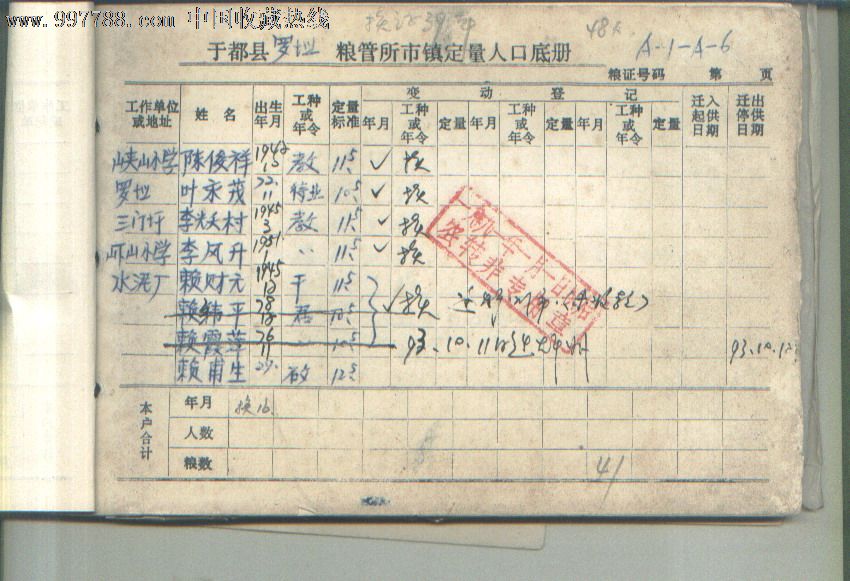 www.997788.com 中国收藏热线
换证39部
48人
于都县 罗垇 粮管所市镇定量人口底册
A-1-A-6
粮证号码 第 页
工作单位或地址 姓名 出生年月 工种或年令 定量标准 变动登记 迁入起供日期 迁出停供日期
年月 工种或年令 定量 年月 工种或年令 定量 年月 工种或年令 定量
峡山小学 陈俊祥 1942 教 11.5 ✓ 换
罗垇 叶永茂 72.11 待业 10.5 ✓ 换
三门圩 李 村 1945.3 教 11.5 ✓ 换
峡山小学 李风升 1951.1 〃 11.5 ✓ 换
水泥厂 赖财元 1945.12 干 11.5
赖纬平 78.12 居 10.5 ✓ 换
赖霞萍 76.11 〃 10.5 93.10.11 93.10.12
赖甫生 29. 12.5
本户合计
年月 换16.
人数
粮数
41